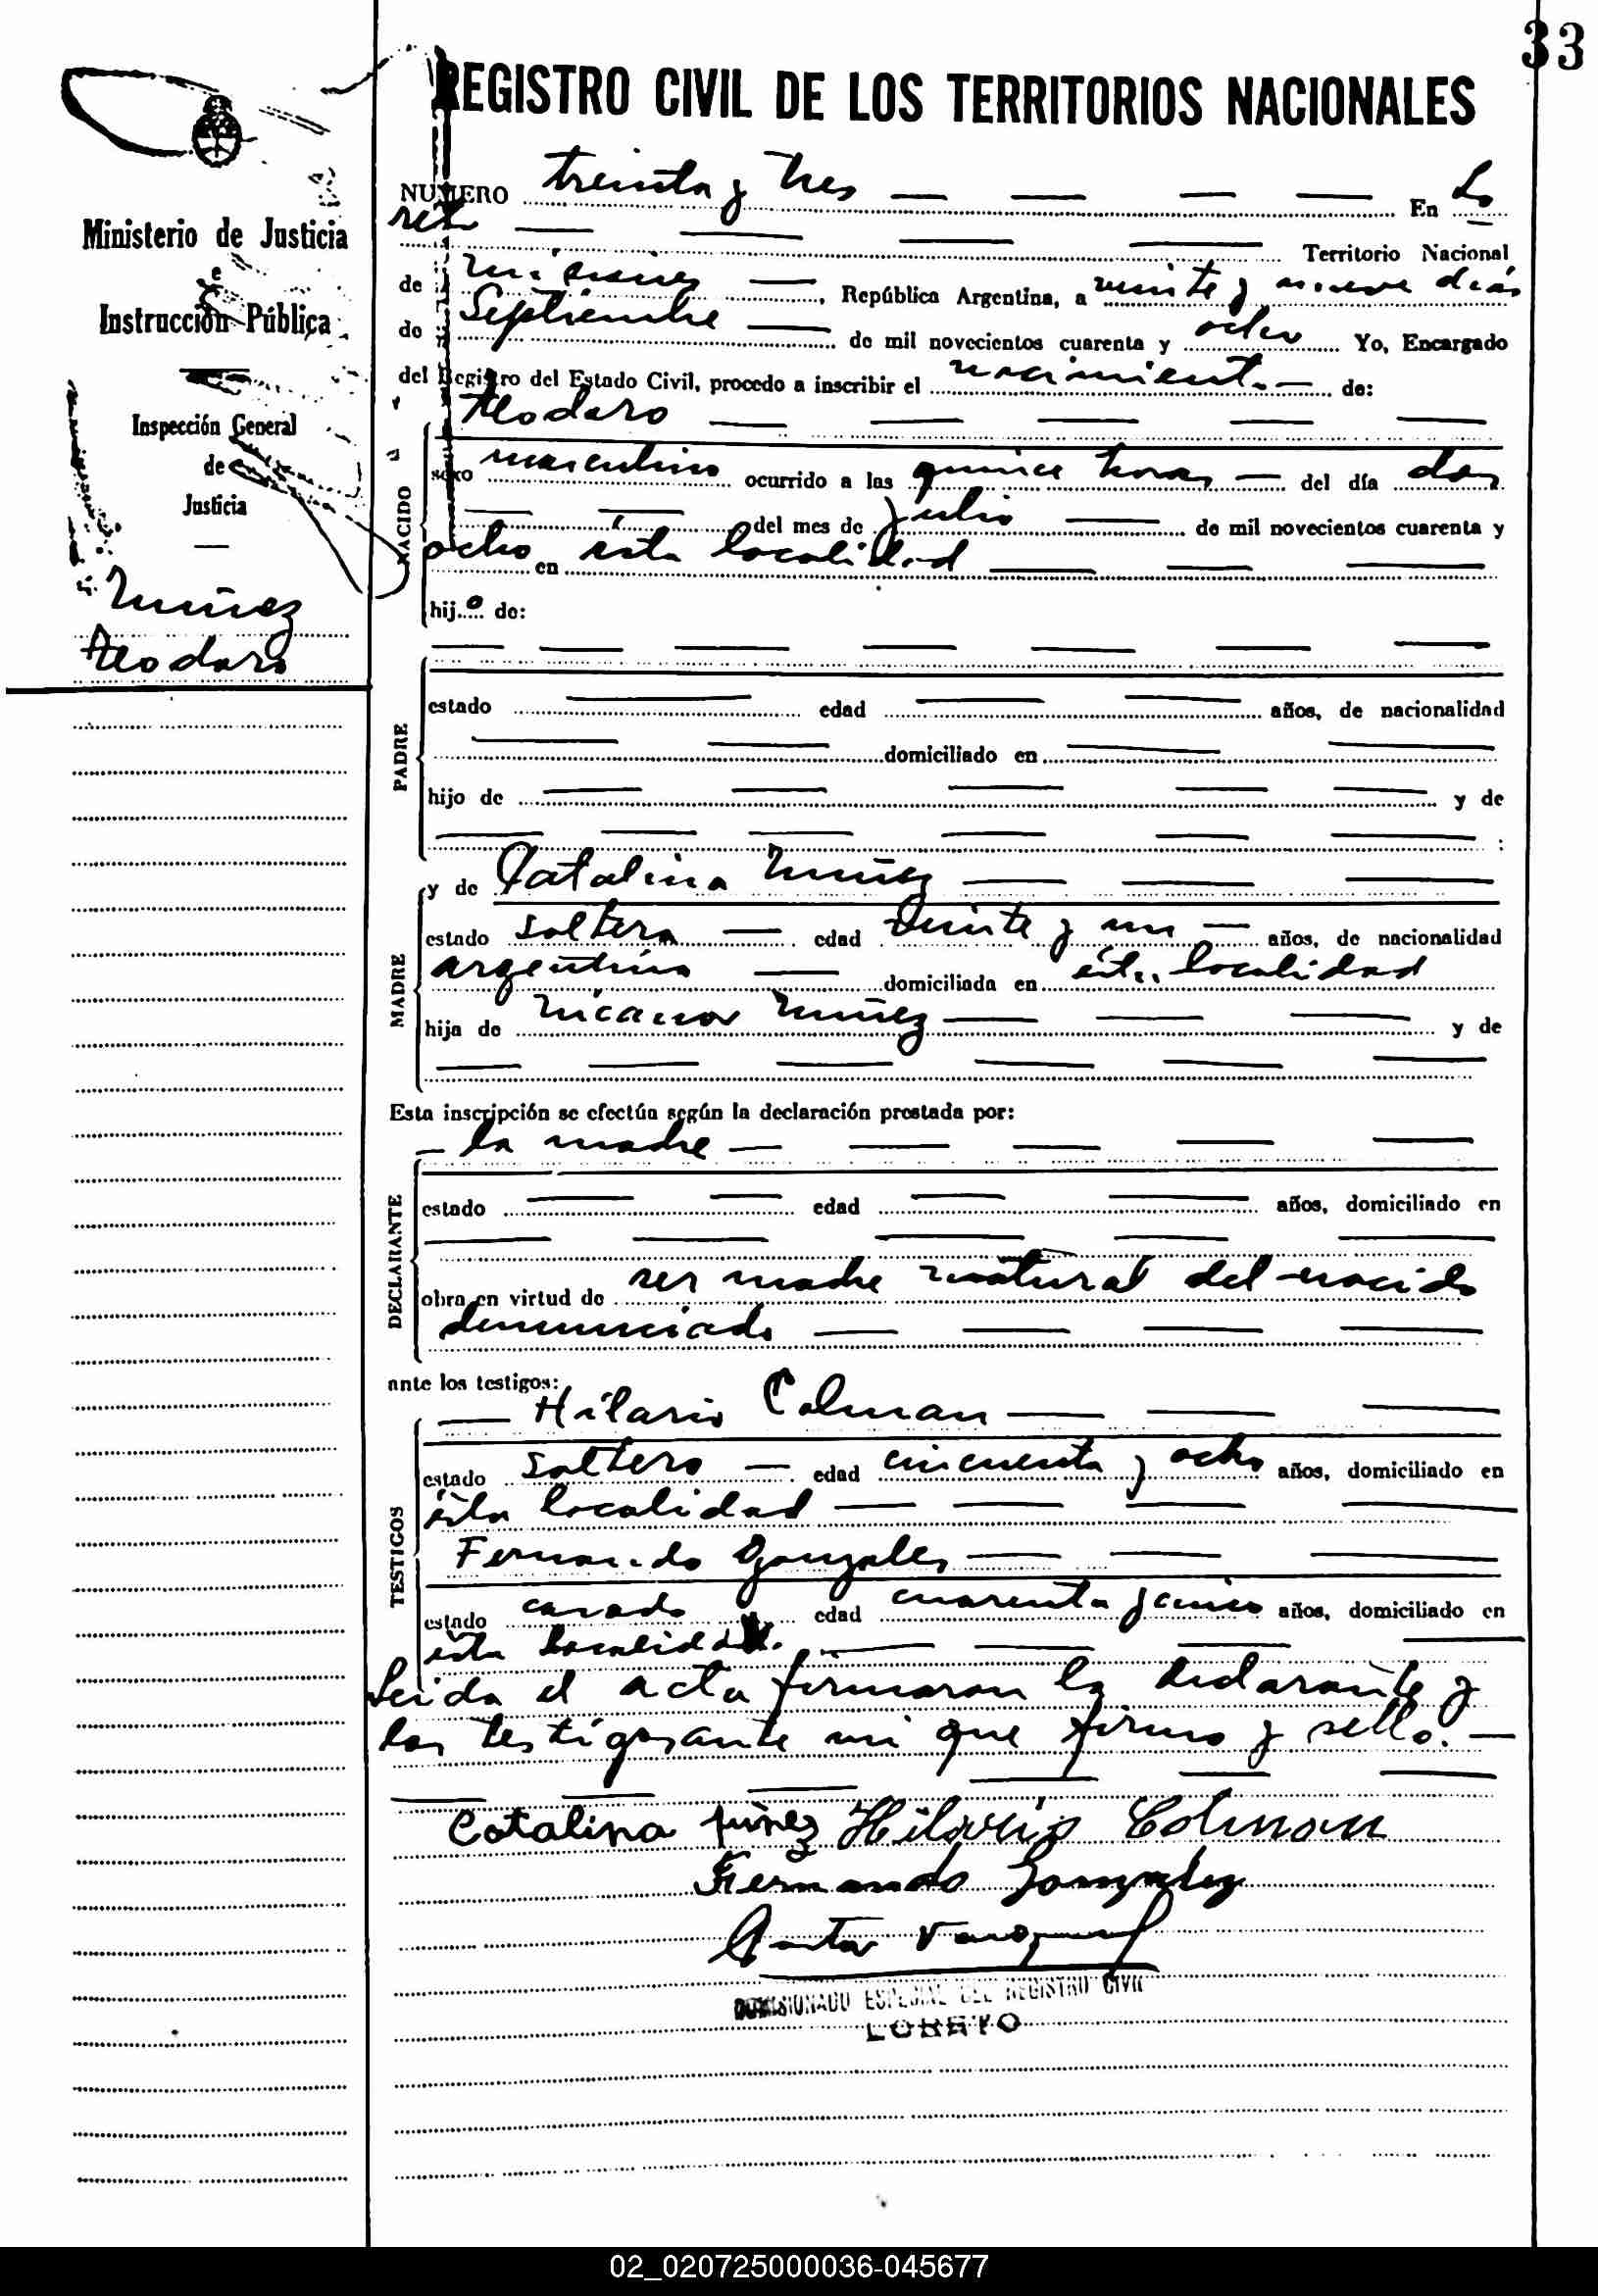 33
REGISTRO CIVIL DE LOS TERRITORIOS NACIONALES
Ministerio de Justicia
e
Instrucción Pública
Inspección General
de
Justicia
Nuñez
Teodoro
NUMERO treinta y tres — — — — En Lo
reto — — — — Territorio Nacional
de Misiones —, República Argentina, a veinte y nueve días
de Septiembre — de mil novecientos cuarenta y ocho Yo, Encargado
del Registro del Estado Civil, procedo a inscribir el nacimiento — de:
NACIDO
Teodoro — — — — —
sexo masculino ocurrido a las quince horas — del día dos
— — del mes de Julio — de mil novecientos cuarenta y
ocho en ésta localidad — — —
hijo de:
— — — — — — —
PADRE
estado — edad — — años, de nacionalidad
— — domiciliado en — —
hijo de — — — — — y de
— — — — — — :
MADRE
y de Catalina Nuñez — — —
estado soltera — edad veinte y un — años, de nacionalidad
argentina — domiciliada en ésta localidad
hija de Nicanor Nuñez — — — y de
— — — — — —
Esta inscripción se efectúa según la declaración prestada por:
— la madre — — — — —
DECLARANTE
estado — — edad — — años, domiciliado en
— — — — —
obra en virtud de ser madre natural del nacido
denunciado — — — —
ante los testigos:
TESTIGOS
— Hilario Colman — — —
estado soltero — edad cincuenta y ocho años, domiciliado en
ésta localidad — — — —
Fernando Gonzales — — —
estado casado edad cuarenta y cinco años, domiciliado en
ésta localidad. — — — —
Leida el acta firmaron la declarante y
los testigos ante mi que firmo y sello. —
— — — — — —
Catalina Nuñez Hilario Colman
Fernando Gonzalez
COMISIONADO ESPECIAL DEL REGISTRO CIVIL
LORETO
02_020725000036-045677